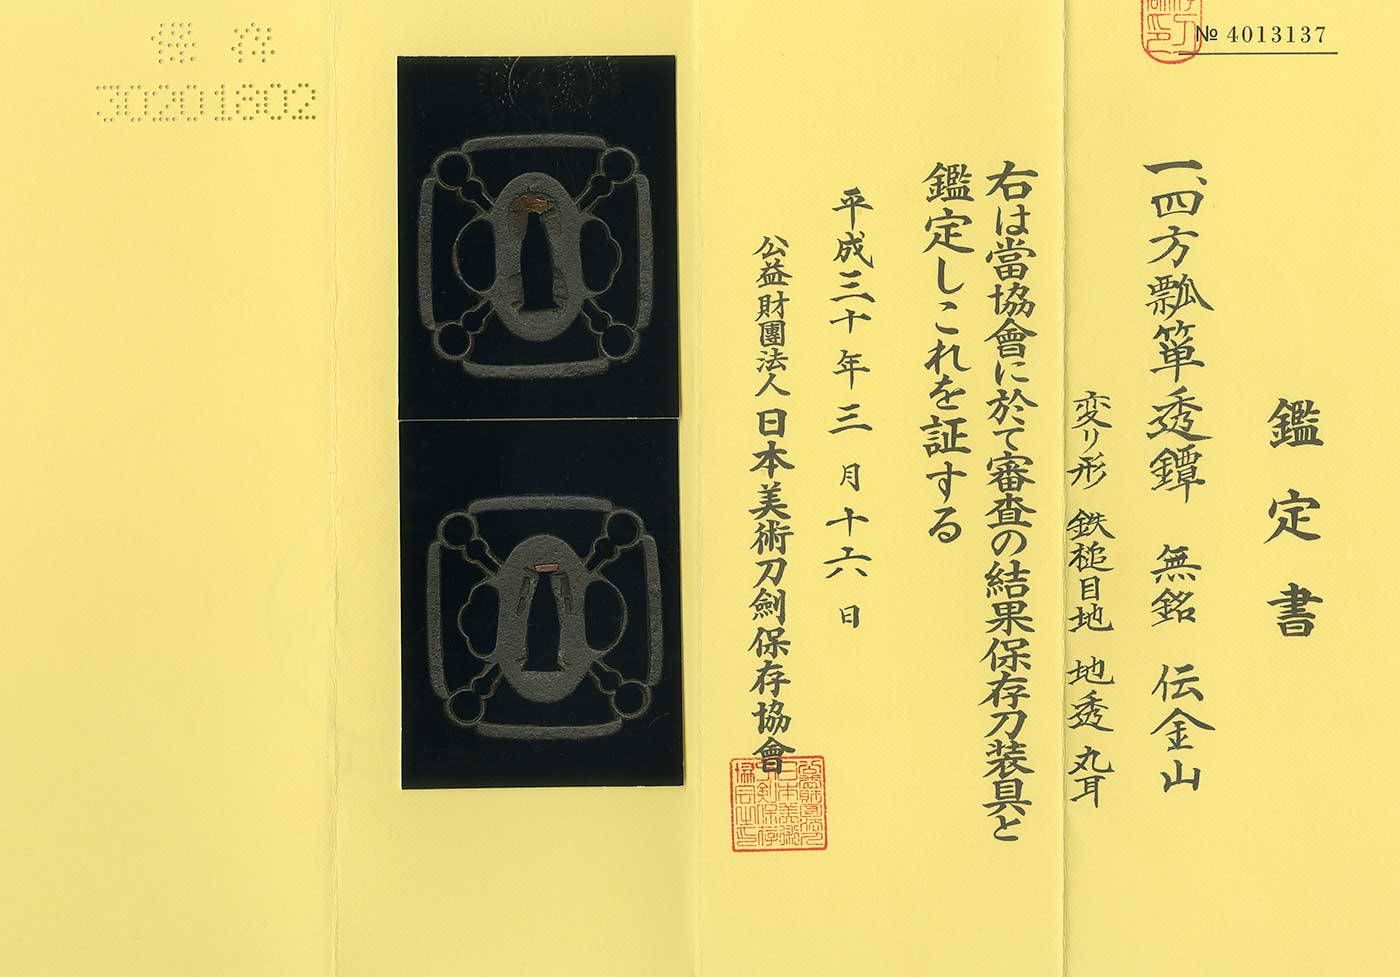 № 4013137
鑑定書
一、四方瓢箪透鐔 無銘 伝金山
変り形 鉄槌目地 地透 丸耳
右は當協會に於て審査の結果保存刀装具と
鑑定しこれを証する
平成三十年三月十六日
公益財團法人 日本美術刀劍保存協會
保存
30201802